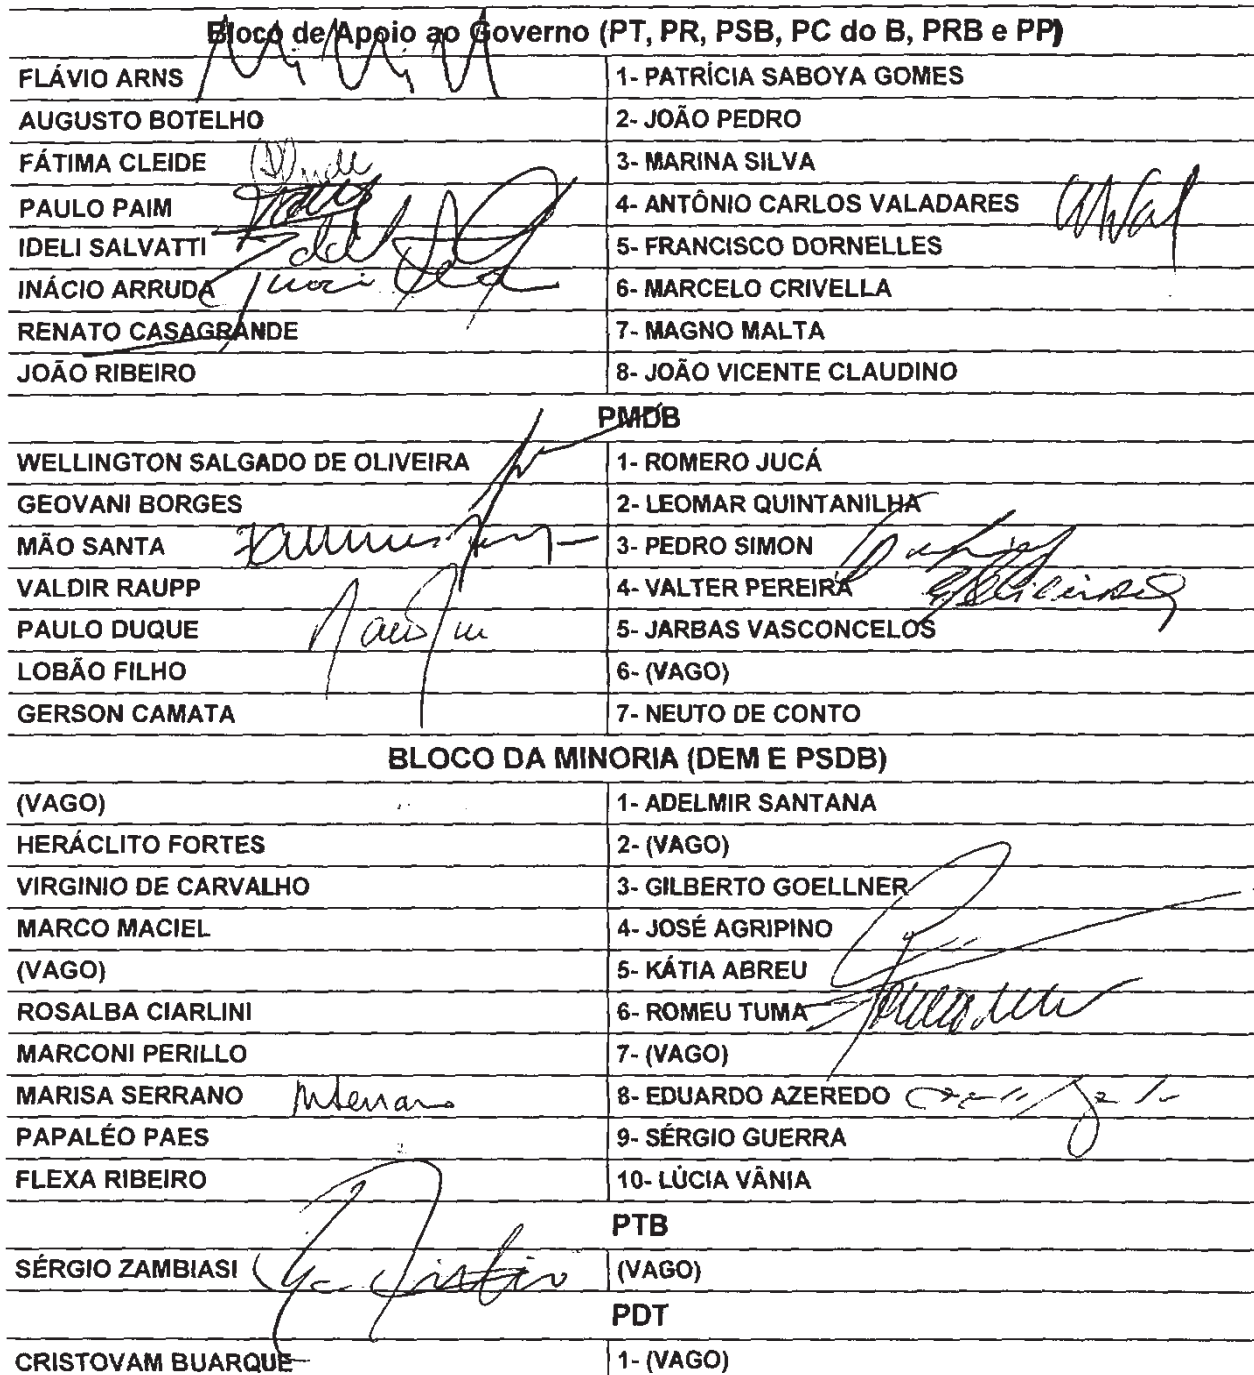 Bloco de Apoio ao Governo (PT, PR, PSB, PC do B, PRB e PP)
FLÁVIO ARNS 1- PATRÍCIA SABOYA GOMES
AUGUSTO BOTELHO 2- JOÃO PEDRO
FÁTIMA CLEIDE 3- MARINA SILVA
PAULO PAIM 4- ANTÔNIO CARLOS VALADARES
IDELI SALVATTI 5- FRANCISCO DORNELLES
INÁCIO ARRUDA 6- MARCELO CRIVELLA
RENATO CASAGRANDE 7- MAGNO MALTA
JOÃO RIBEIRO 8- JOÃO VICENTE CLAUDINO
PMDB
WELLINGTON SALGADO DE OLIVEIRA 1- ROMERO JUCÁ
GEOVANI BORGES 2- LEOMAR QUINTANILHA
MÃO SANTA 3- PEDRO SIMON
VALDIR RAUPP 4- VALTER PEREIRA
PAULO DUQUE 5- JARBAS VASCONCELOS
LOBÃO FILHO 6- (VAGO)
GERSON CAMATA 7- NEUTO DE CONTO
BLOCO DA MINORIA (DEM E PSDB)
(VAGO) 1- ADELMIR SANTANA
HERÁCLITO FORTES 2- (VAGO)
VIRGINIO DE CARVALHO 3- GILBERTO GOELLNER
MARCO MACIEL 4- JOSÉ AGRIPINO
(VAGO) 5- KÁTIA ABREU
ROSALBA CIARLINI 6- ROMEU TUMA
MARCONI PERILLO 7- (VAGO)
MARISA SERRANO 8- EDUARDO AZEREDO
PAPALÉO PAES 9- SÉRGIO GUERRA
FLEXA RIBEIRO 10- LÚCIA VÂNIA
PTB
SÉRGIO ZAMBIASI (VAGO)
PDT
CRISTOVAM BUARQUE 1- (VAGO)